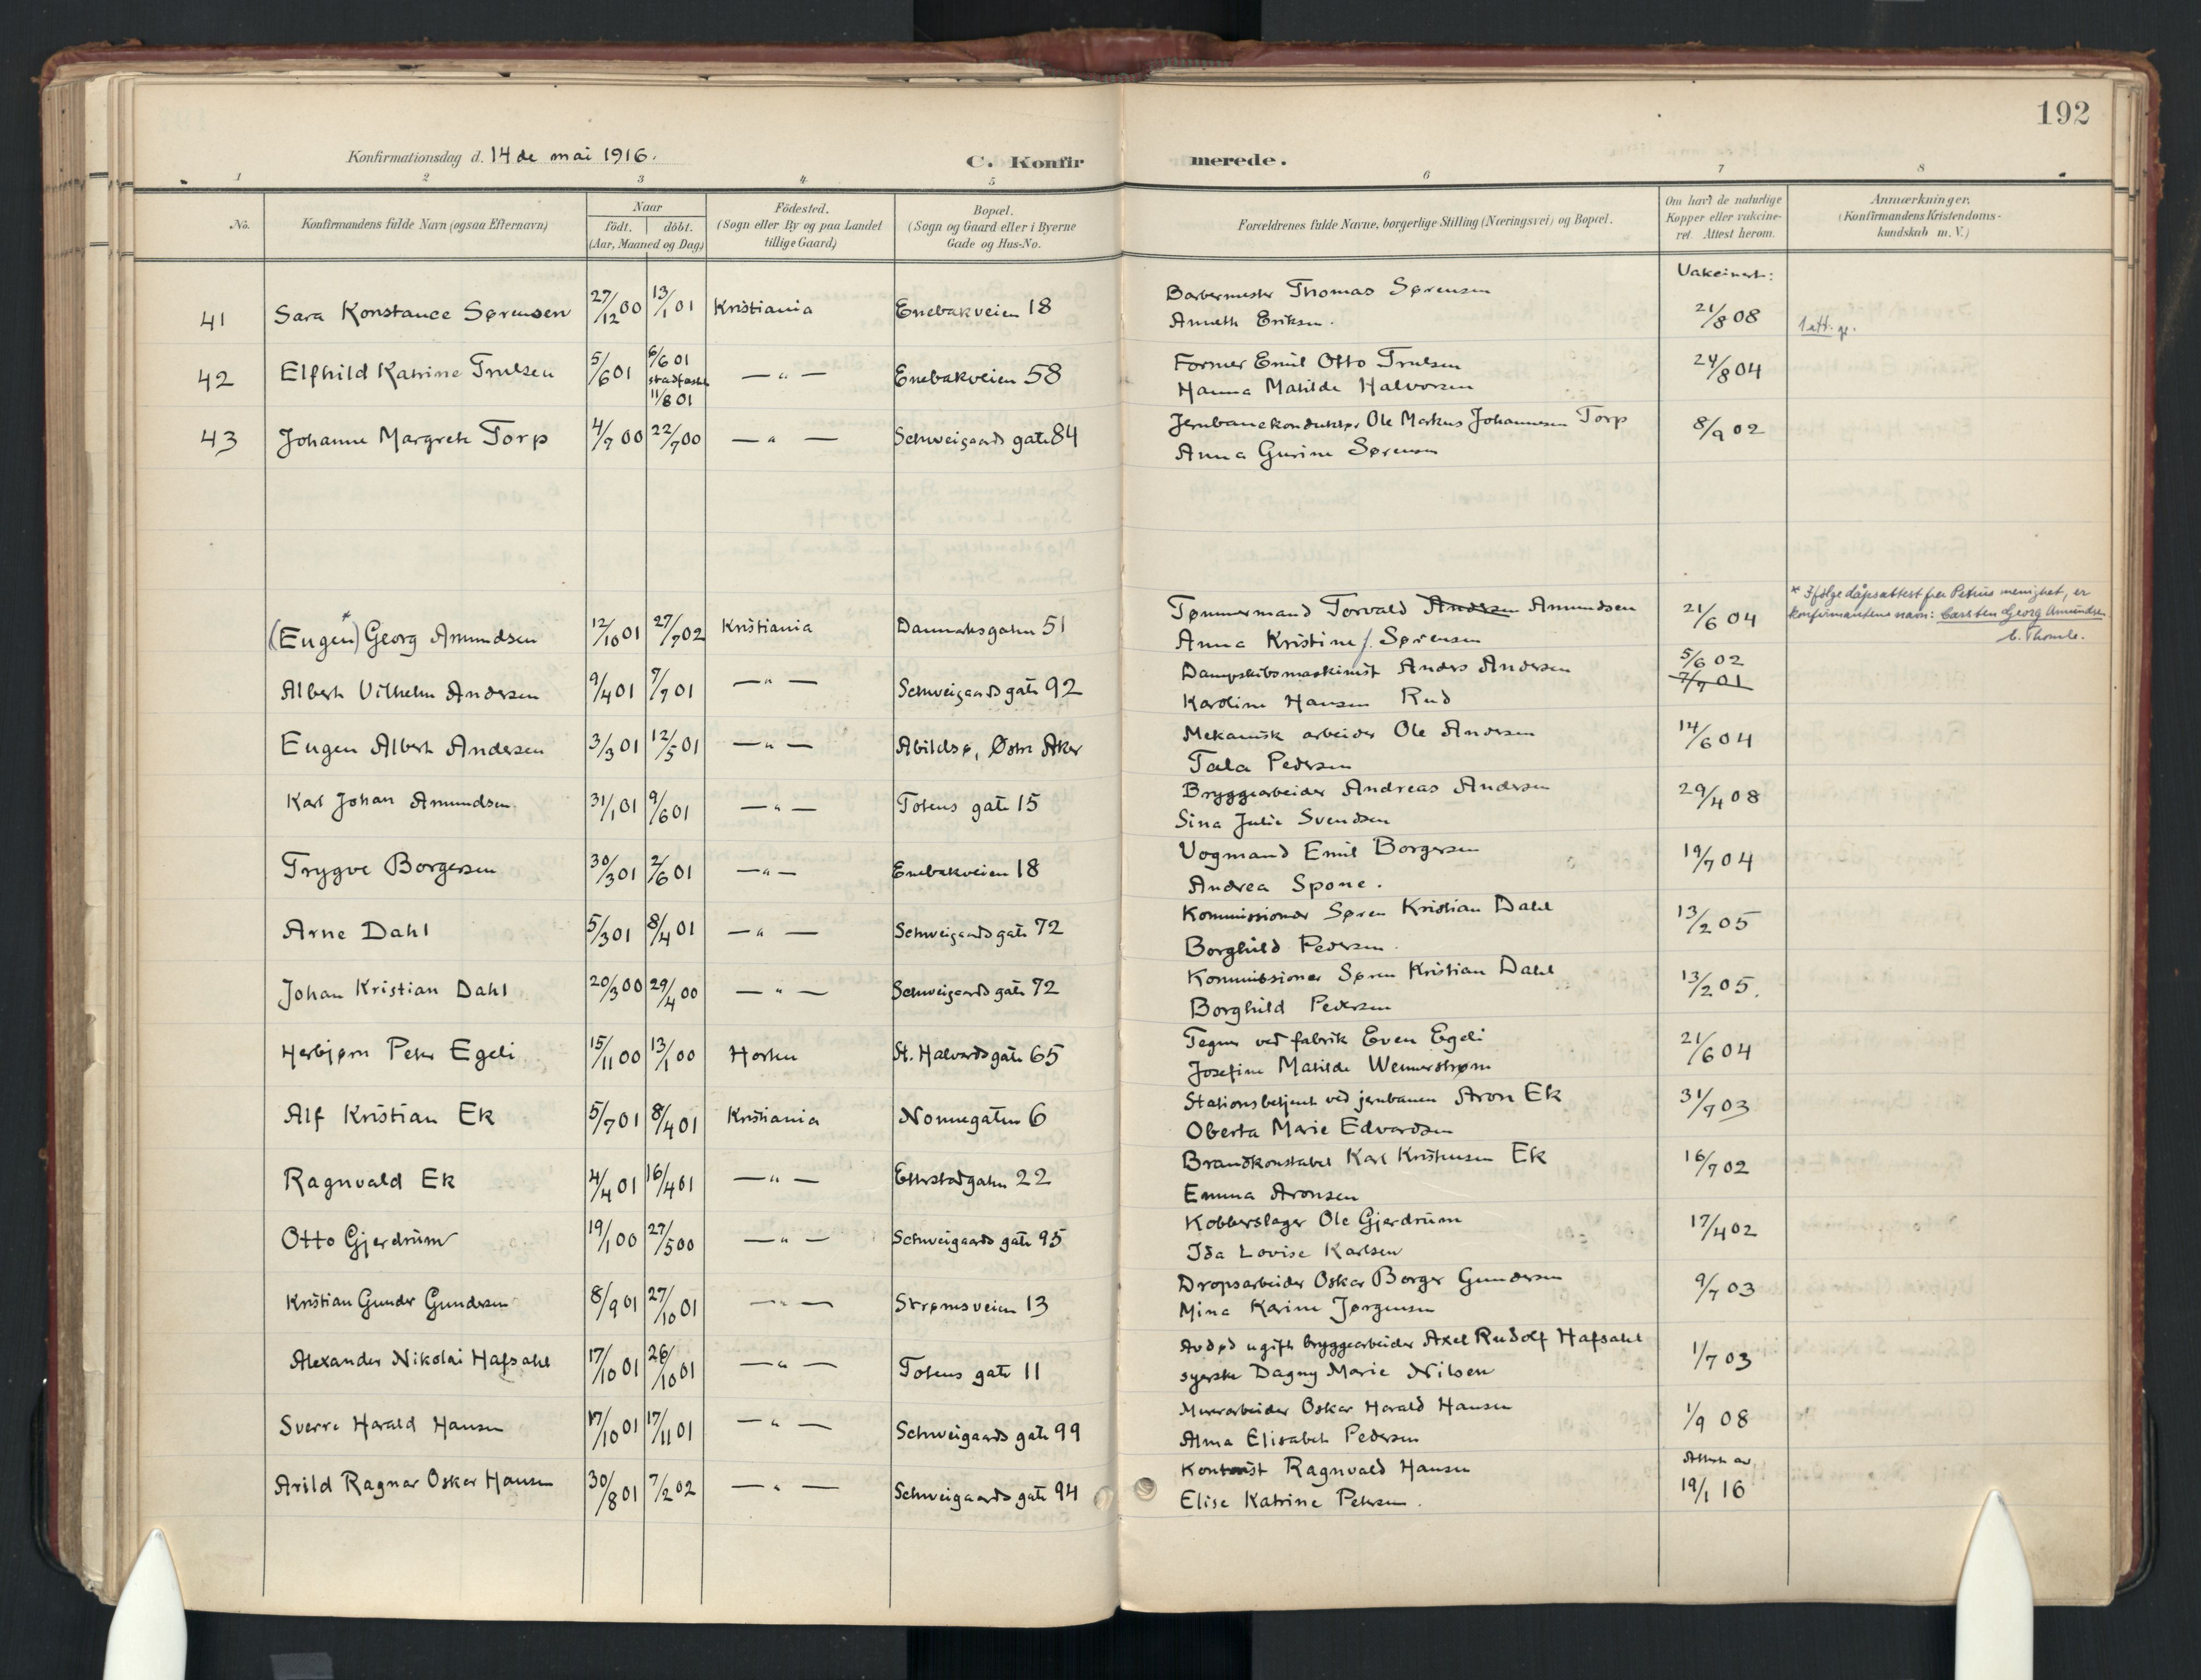 192
Konfirmationsdag d. 14 de mai 1916.
C. Konfirmerede.
1 2 3 4 5 6 7 8
No. Konfirmandens fulde Navn (ogsaa Efternavn) Naar födt. döbt. (Aar, Maaned og Dag) Födested. (Sogn eller By og paa Landet tillige Gaard) Bopæl. (Sogn og Gaard eller i Byerne Gade og Hus-No. Forældrenes fulde Navne, borgerlige Stilling (Næringsvei) og Bopæl. Om havd de naturlige Kopper eller vakcineret. Attest herom. Anmærkninger. (Konfirmandens Kristendomskundskab m. V.)
Vakcinert:
41 Sara Konstance Sørensen 27/12 00 13/1 01 Kristiania Enebakveien 18 Barbermester Thomas Sørensen 21/8 08
Anneth Eriksen.
42 Elfhild Katrine Trulsen 5/6 01 6/6 01 stadfæstet 11/8 01 — " — Enebakveien 58 Former Emil Otto Trulsen 24/8 04
Hanna Matilde Halvorsen
43 Johanne Margrete Torp 4/7 00 22/7 00 — " — Schweigaards gate 84 Jernbanekonduktør Ole Markus Johannesen Torp 8/9 02
Anna Gurine Sørensen
(Eugen*) Georg Amundsen 12/10 01 27/7 02 Kristiania Danmarksgaten 51 Tømmermand Torvald Andersen Amundsen 21/6 04 * Ifølge dåpsattest fra Petrus menighet, er
Anna Kristine f. Sørensen konfirmantens navn: Carsten Georg Amundsen
C. Thomle.
Albert Vilhelm Andersen 9/4 01 7/7 01 — " — Schweigaards gate 92 Dampskibsmaskinist Anders Andersen 5/6 02
Karoline Hansen Rud 7/7 01
Eugen Albert Andersen 3/3 01 12/5 01 — " — Abildsø, Østre Aker Mekanisk arbeider Ole Andersen 14/6 04
Tala Pedersen
Karl Johan Amundsen 31/1 01 9/6 01 — " — Totens gate 15 Bryggearbeider Andreas Andersen 29/4 08
Sina Julie Svendsen
Trygve Borgersen 30/3 01 2/6 01 — " — Enebakveien 18 Vogmand Emil Borgersen 19/7 04
Andrea Spone.
Arne Dahl 5/3 01 8/4 01 — " — Schweigaards gate 72 Kommissionær Søren Kristian Dahl 13/2 05
Borghild Pedersen.
Johan Kristian Dahl 20/3 00 29/4 00 — " — Schweigaards gate 72 Kommissionær Søren Kristian Dahl 13/2 05.
Borghild Pedersen
Herbjørn Peter Egeli 15/11 00 13/1 00 Horten St. Halvards gate 65 Tegner ved fabrik Even Egeli 21/6 04
Josefine Matilde Wennerstrøm
Alf Kristian Ek 5/7 01 8/4 01 Kristiania Nonnegaten 6 Stationsbetjent ved jernbanen Aron Ek 31/7 03
Oberta Marie Edvardsen
Ragnvald Ek 4/4 01 16/4 01 — " — Etterstadgaten 22 Brandkonstabel Karl Kristensen Ek 16/7 02
Emma Aronsen
Otto Gjerdrum 19/1 00 27/5 00 — " — Schweigaards gate 95 Kobberslager Ole Gjerdrum 17/4 02
Ida Lovise Karlsen
Kristian Gunder Gundersen 8/9 01 27/10 01 — " — Strømsveien 13 Dropsarbeider Oskar Borger Gundersen 9/7 03
Mina Karine Jørgensen
Alexander Nikolai Hafsahl 17/10 01 26/10 01 — " — Totens gate 11 Avdød ugift bryggearbeider Axel Rudolf Hafsahl 1/7 03
syerske Dagny Marie Nilsen
Sverre Harald Hansen 17/10 01 17/11 01 — " — Schweigaards gate 99 Murerarbeider Oskar Harald Hansen 1/9 08
Alma Elisabeth Pedersen
Attest av
Arild Ragnar Oskar Hansen 30/8 01 7/2 02 — " — Schweigaards gate 94 Kontorist Ragnvald Hansen 19/1 16
Elise Katrine Petersen.